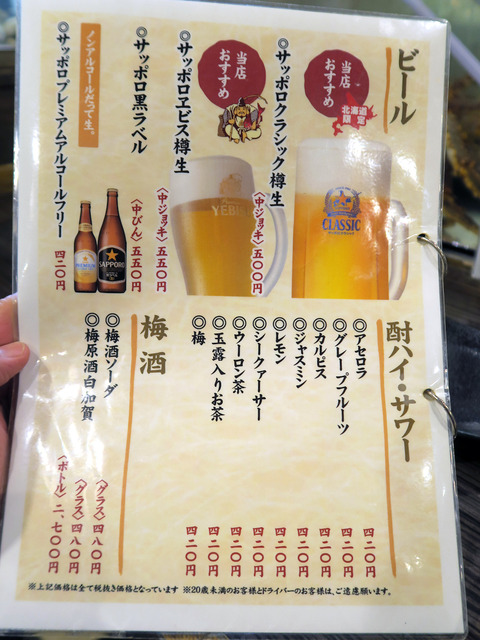 ビール
当店
おすすめ
北海道
限定
◎サッポロクラシック樽生
〈中ジョッキ〉五〇〇円
CLASSIC
当店
おすすめ
◎サッポロヱビス樽生
〈中ジョッキ〉五五〇円
YEBISU
◎サッポロ黒ラベル
〈中びん〉五五〇円
SAPPORO
ノンアルコールだって生。
◎サッポロプレミアムアルコールフリー
四二〇円
PREMIUM
酎ハイ・サワー
◎アセロラ 四二〇円
◎グレープフルーツ 四二〇円
◎カルピス 四二〇円
◎ジャスミン 四二〇円
◎レモン 四二〇円
◎シークァーサー 四二〇円
◎ウーロン茶 四二〇円
◎玉露入りお茶 四二〇円
◎梅 四二〇円
梅酒
◎梅酒ソーダ 〈グラス〉四八〇円
◎梅原酒白加賀 〈グラス〉四八〇円
〈ボトル〉二、七〇〇円
※上記価格は全て税抜き価格となっています ※20歳未満のお客様とドライバーのお客様は、ご遠慮願います。